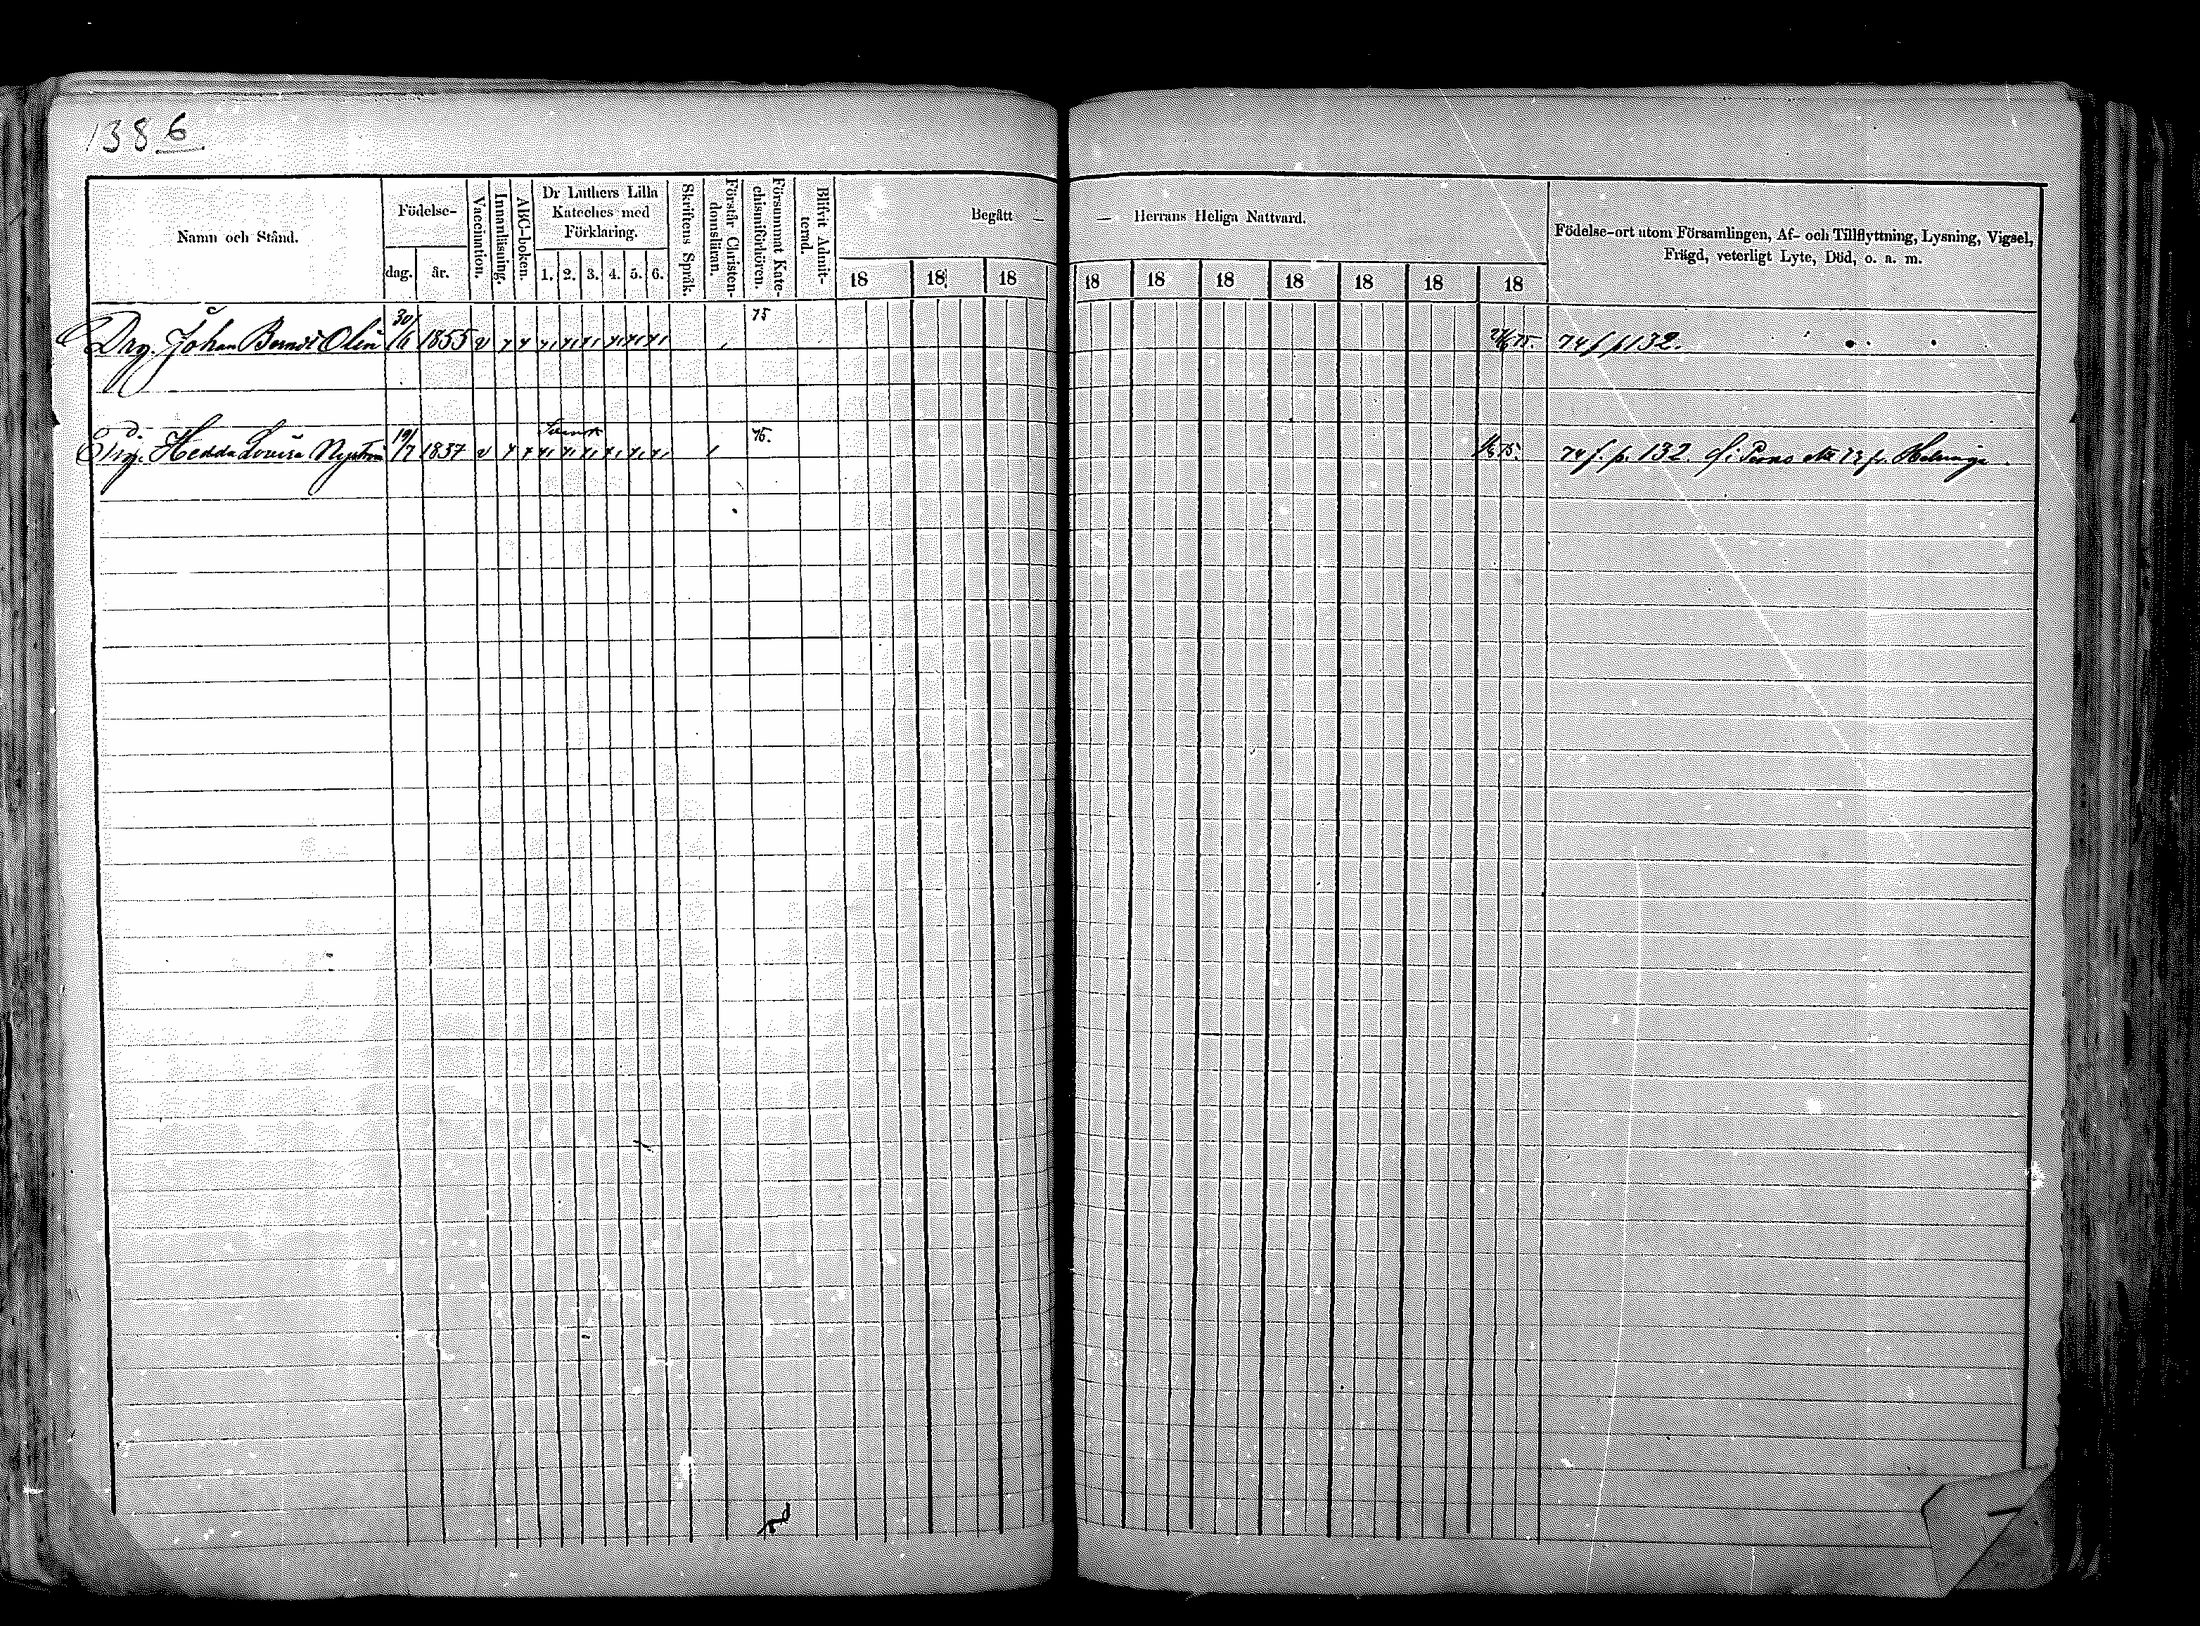 1386
Namn och Stånd.
Födelse-
dag.
år.
Vaccination.
Innanläsning.
ABC-boken.
Dr Luthers Lilla
Kateches med
Förklaring.
1. 2. 3. 4. 5. 6.
Skriftens Språk.
Förstår Christen-
domsläran.
Försummat Kate-
chismiförhören.
Blifvit Admit-
terad.
Begått — — Herrans Heliga Nattvard.
18 18 18 18 18 18 18 18 18 18
Födelse-ort utom Församlingen, Af- och Tillflyttning, Lysning, Vigsel,
Frägd, veterligt Lyte, Död, o. a. m.
Drg. Johan Berndt Olin 30/6 1855 v 75 75. 74 f. p. 132.
Hedda Lovisa Nyström 19/7 1837 v 75. 75. 74 f. p. 132. f. i Perno 73 fr. Helsinge.